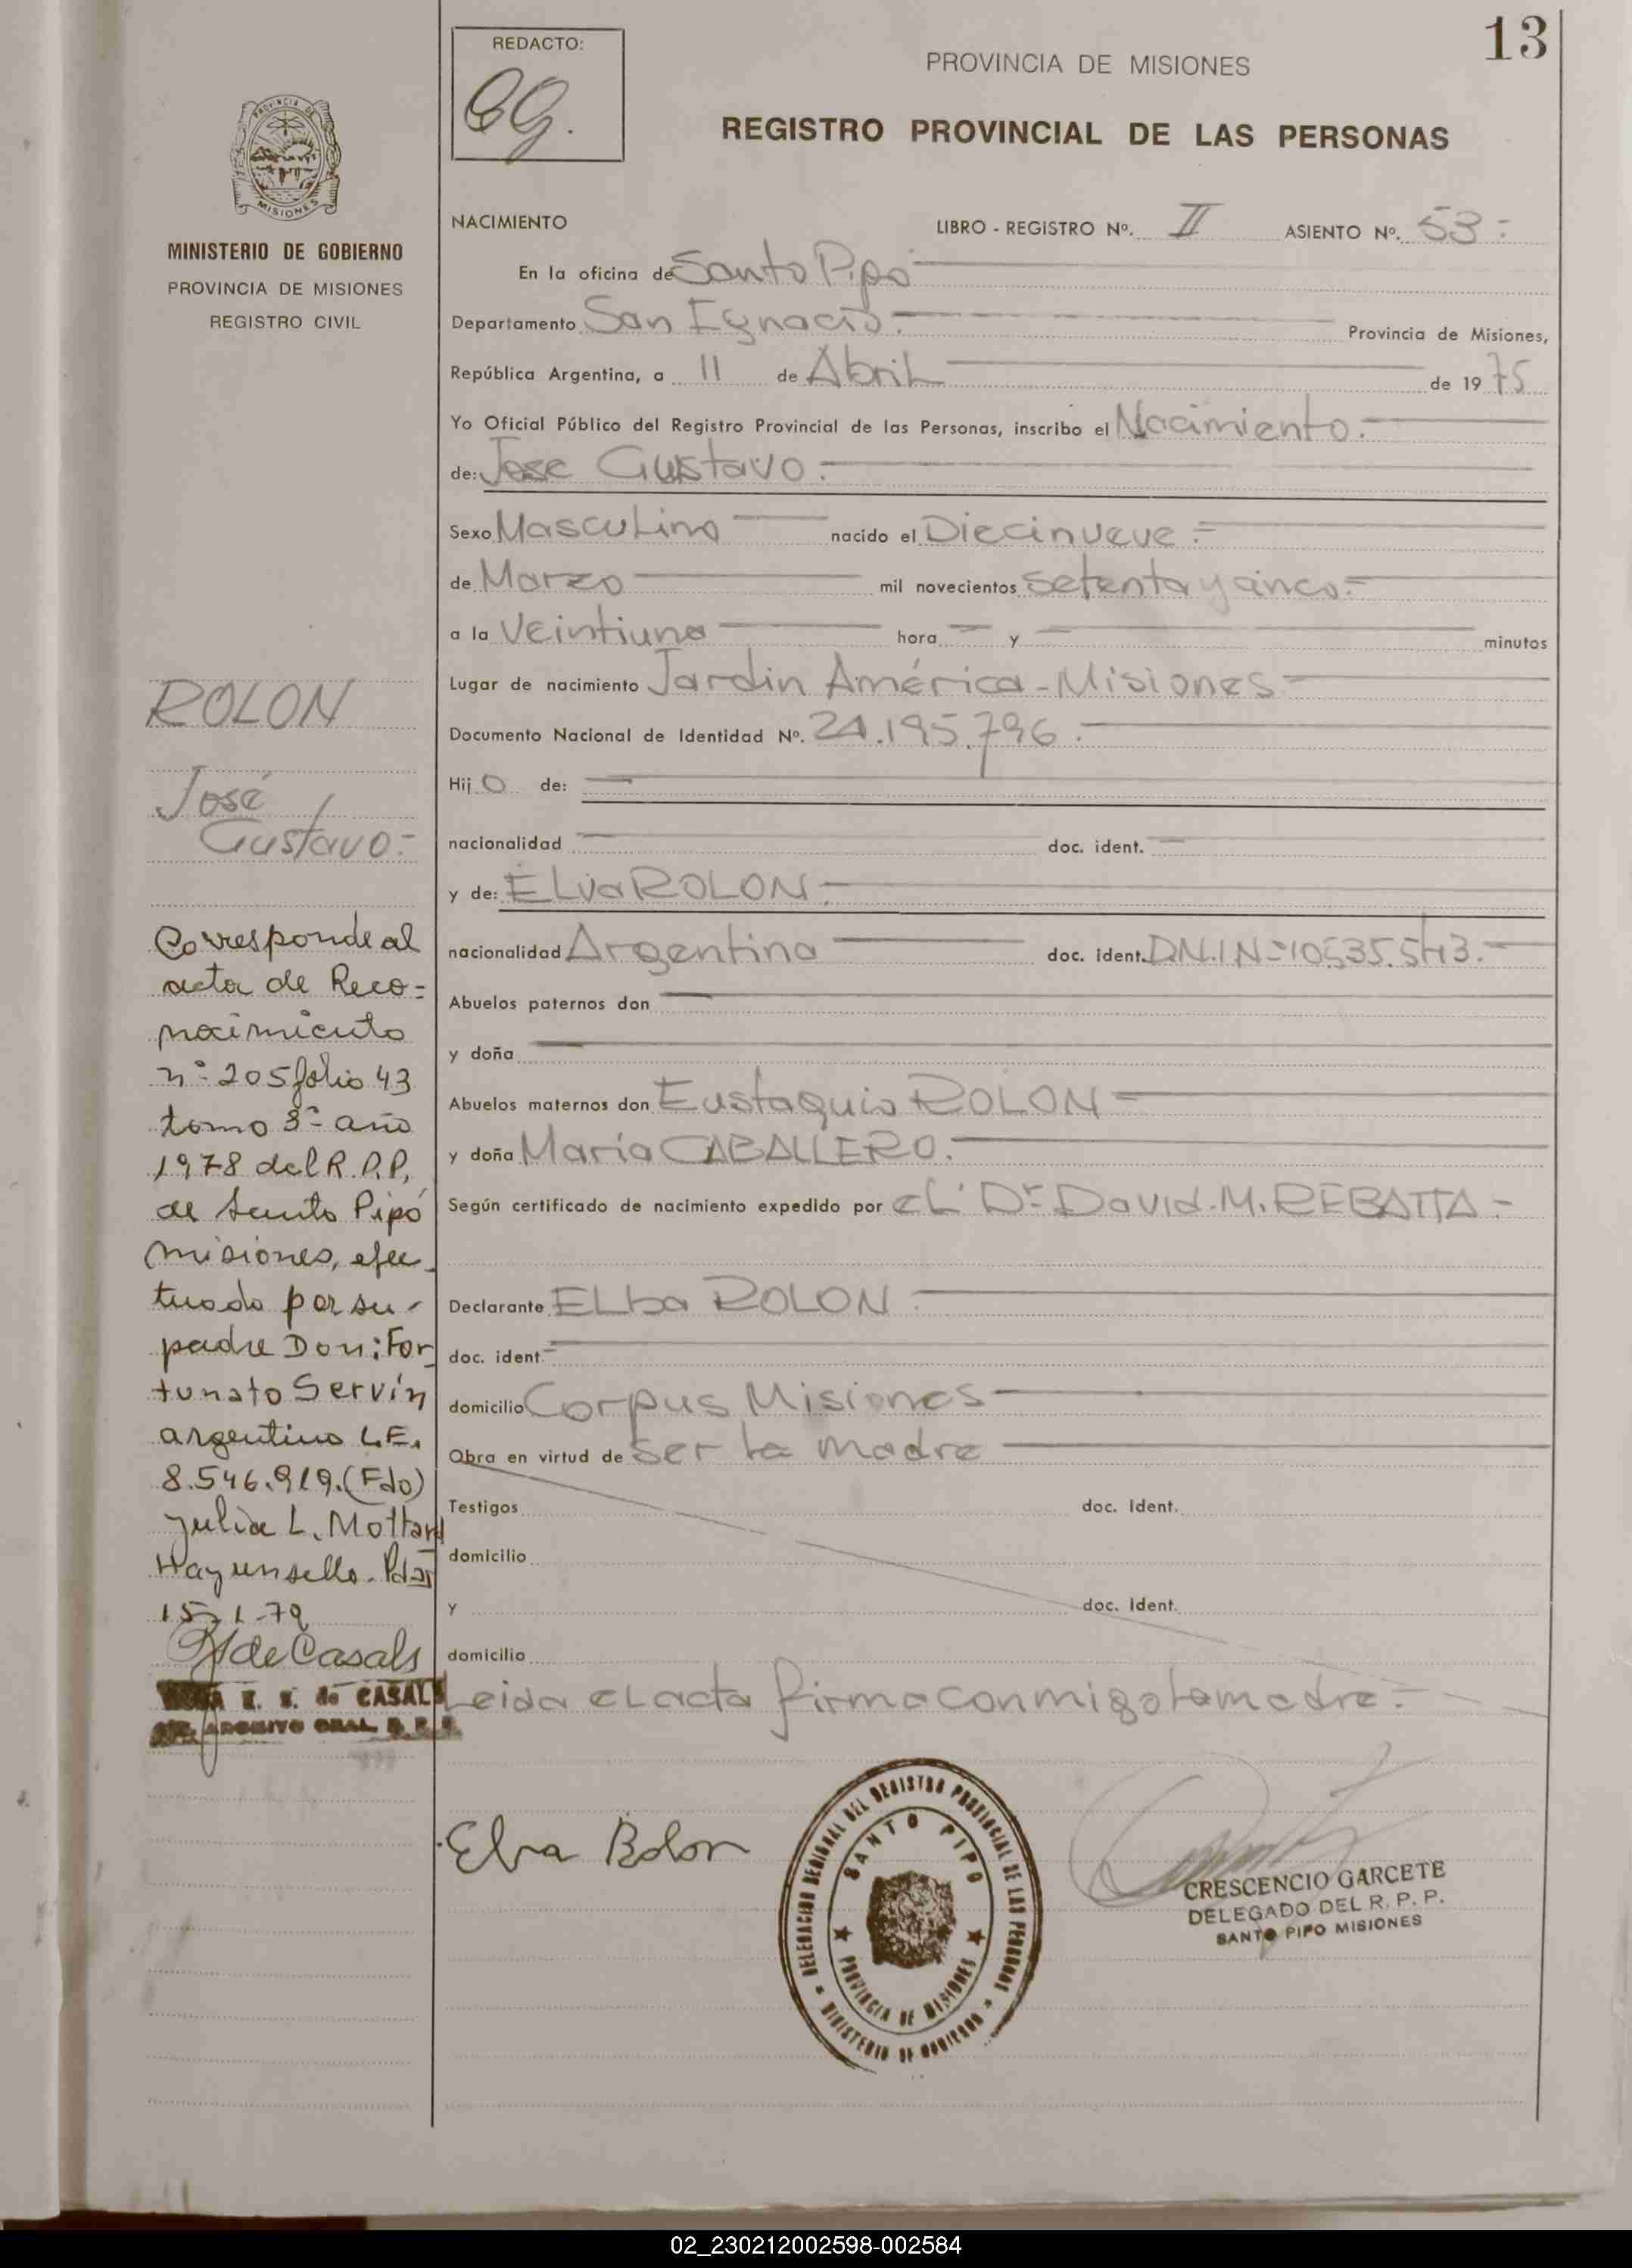 13
REDACTO:
CG.
PROVINCIA DE MISIONES
REGISTRO PROVINCIAL DE LAS PERSONAS
PROVINCIA DE
MISIONES
MINISTERIO DE GOBIERNO
PROVINCIA DE MISIONES
REGISTRO CIVIL
NACIMIENTO LIBRO - REGISTRO Nº. II ASIENTO Nº. 53 =
En la oficina de Santo Pipo
Departamento San Ignacio. Provincia de Misiones,
República Argentina, a 11 de Abril de 19 75
Yo Oficial Público del Registro Provincial de las Personas, inscribo el Nacimiento.
de: Jose Gustavo.
Sexo Masculino nacido el Diecinueve =
de Marzo mil novecientos setenta y cinco.=
a la Veintiuna hora — y — minutos
Lugar de nacimiento Jardin América - Misiones
Documento Nacional de Identidad Nº. 24.195.796.
Hij o de: —
nacionalidad — doc. ident. —
y de: ELva ROLON.
nacionalidad Argentina doc. ident. D.N.I Nº 10.535.543.
Abuelos paternos don —
y doña —
Abuelos maternos don Eustaquio ROLON
y doña María CABALLERO.
Según certificado de nacimiento expedido por eL Dr. David. M. REBATTA -
Declarante ELba ROLON
doc. ident. —
domicilio Corpus Misiones
Obra en virtud de ser La madre
Testigos doc. Ident.
domicilio
y doc. Ident.
domicilio
Leida eL acta firma conmigo La madre =
ROLON
José
Gustavo.-
Corresponde al
acta de Reco=
nocimiento
nº 205 folio 43
tomo 3º año
1978 del R.P.P.
de Santo Pipó
Misiones, efec_
tuado por su
padre Don: For_
tunato Servín
argentino L.E.
8.546.919.(Fdo)
Julia L. Mottard
Hay un sello. Pdas
15-1-79
de Casals
de CASALS
ARCHIVO GRAL.
Elva Rolon
DELEGACION REGIONAL DEL REGISTRO PROVINCIAL DE LAS PERSONAS
SANTO PIPO
PROVINCIA DE MISIONES
MINISTERIO DE GOBIERNO
CRESCENCIO GARCETE
DELEGADO DEL R. P. P.
SANTO PIPO MISIONES
02_230212002598-002584